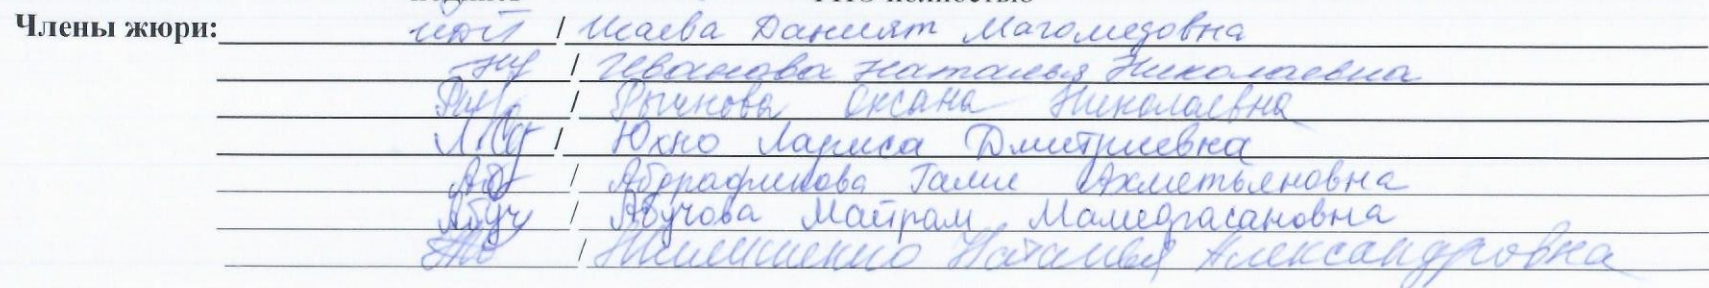 Члены жюри: / Шаева Даният Магомедовна
/ Иванова Наталья Николаевна
/ Рычнова Оксана Николаевна
/ Юхно Лариса Дмитриевна
/ Абдрафикова Ахметьяновна
/ Абучова Майрам Мамедгасановна
/ Наталья Александровна